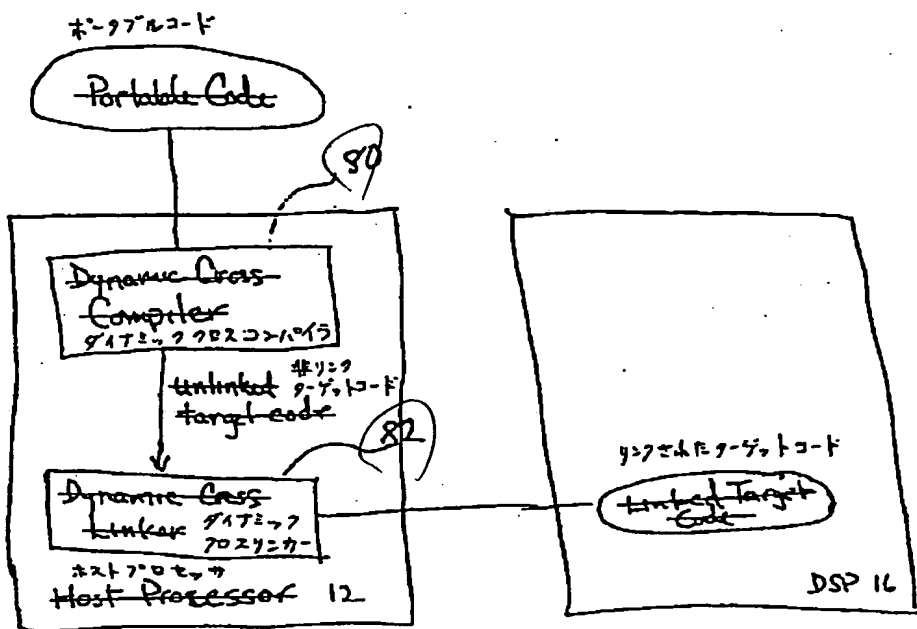 ポータブルコード
Portable Code
80
Dynamic Cross
Compiler
ダイナミッククロスコンパイラ
unlinked 非リンク
target code ターゲットコード
82
Dynamic Cross
Linker ダイナミック
クロスリンカー
ホストプロセッサ
Host Processor 12
リンクされたターゲットコード
Linked Target
Code
DSP 16